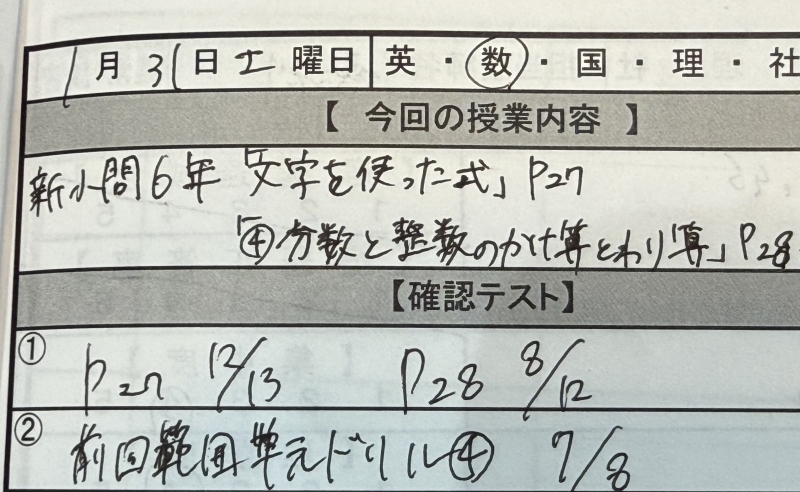 1月31日土曜日 英・数・国・理・社
【 今回の授業内容 】
新小問6年「文字を使った式」P27
「④分数と整数のかけ算とわり算」P28
【確認テスト】
① P27 12/13 P28 8/12
② 前回範囲単元ドリル④ 7/8